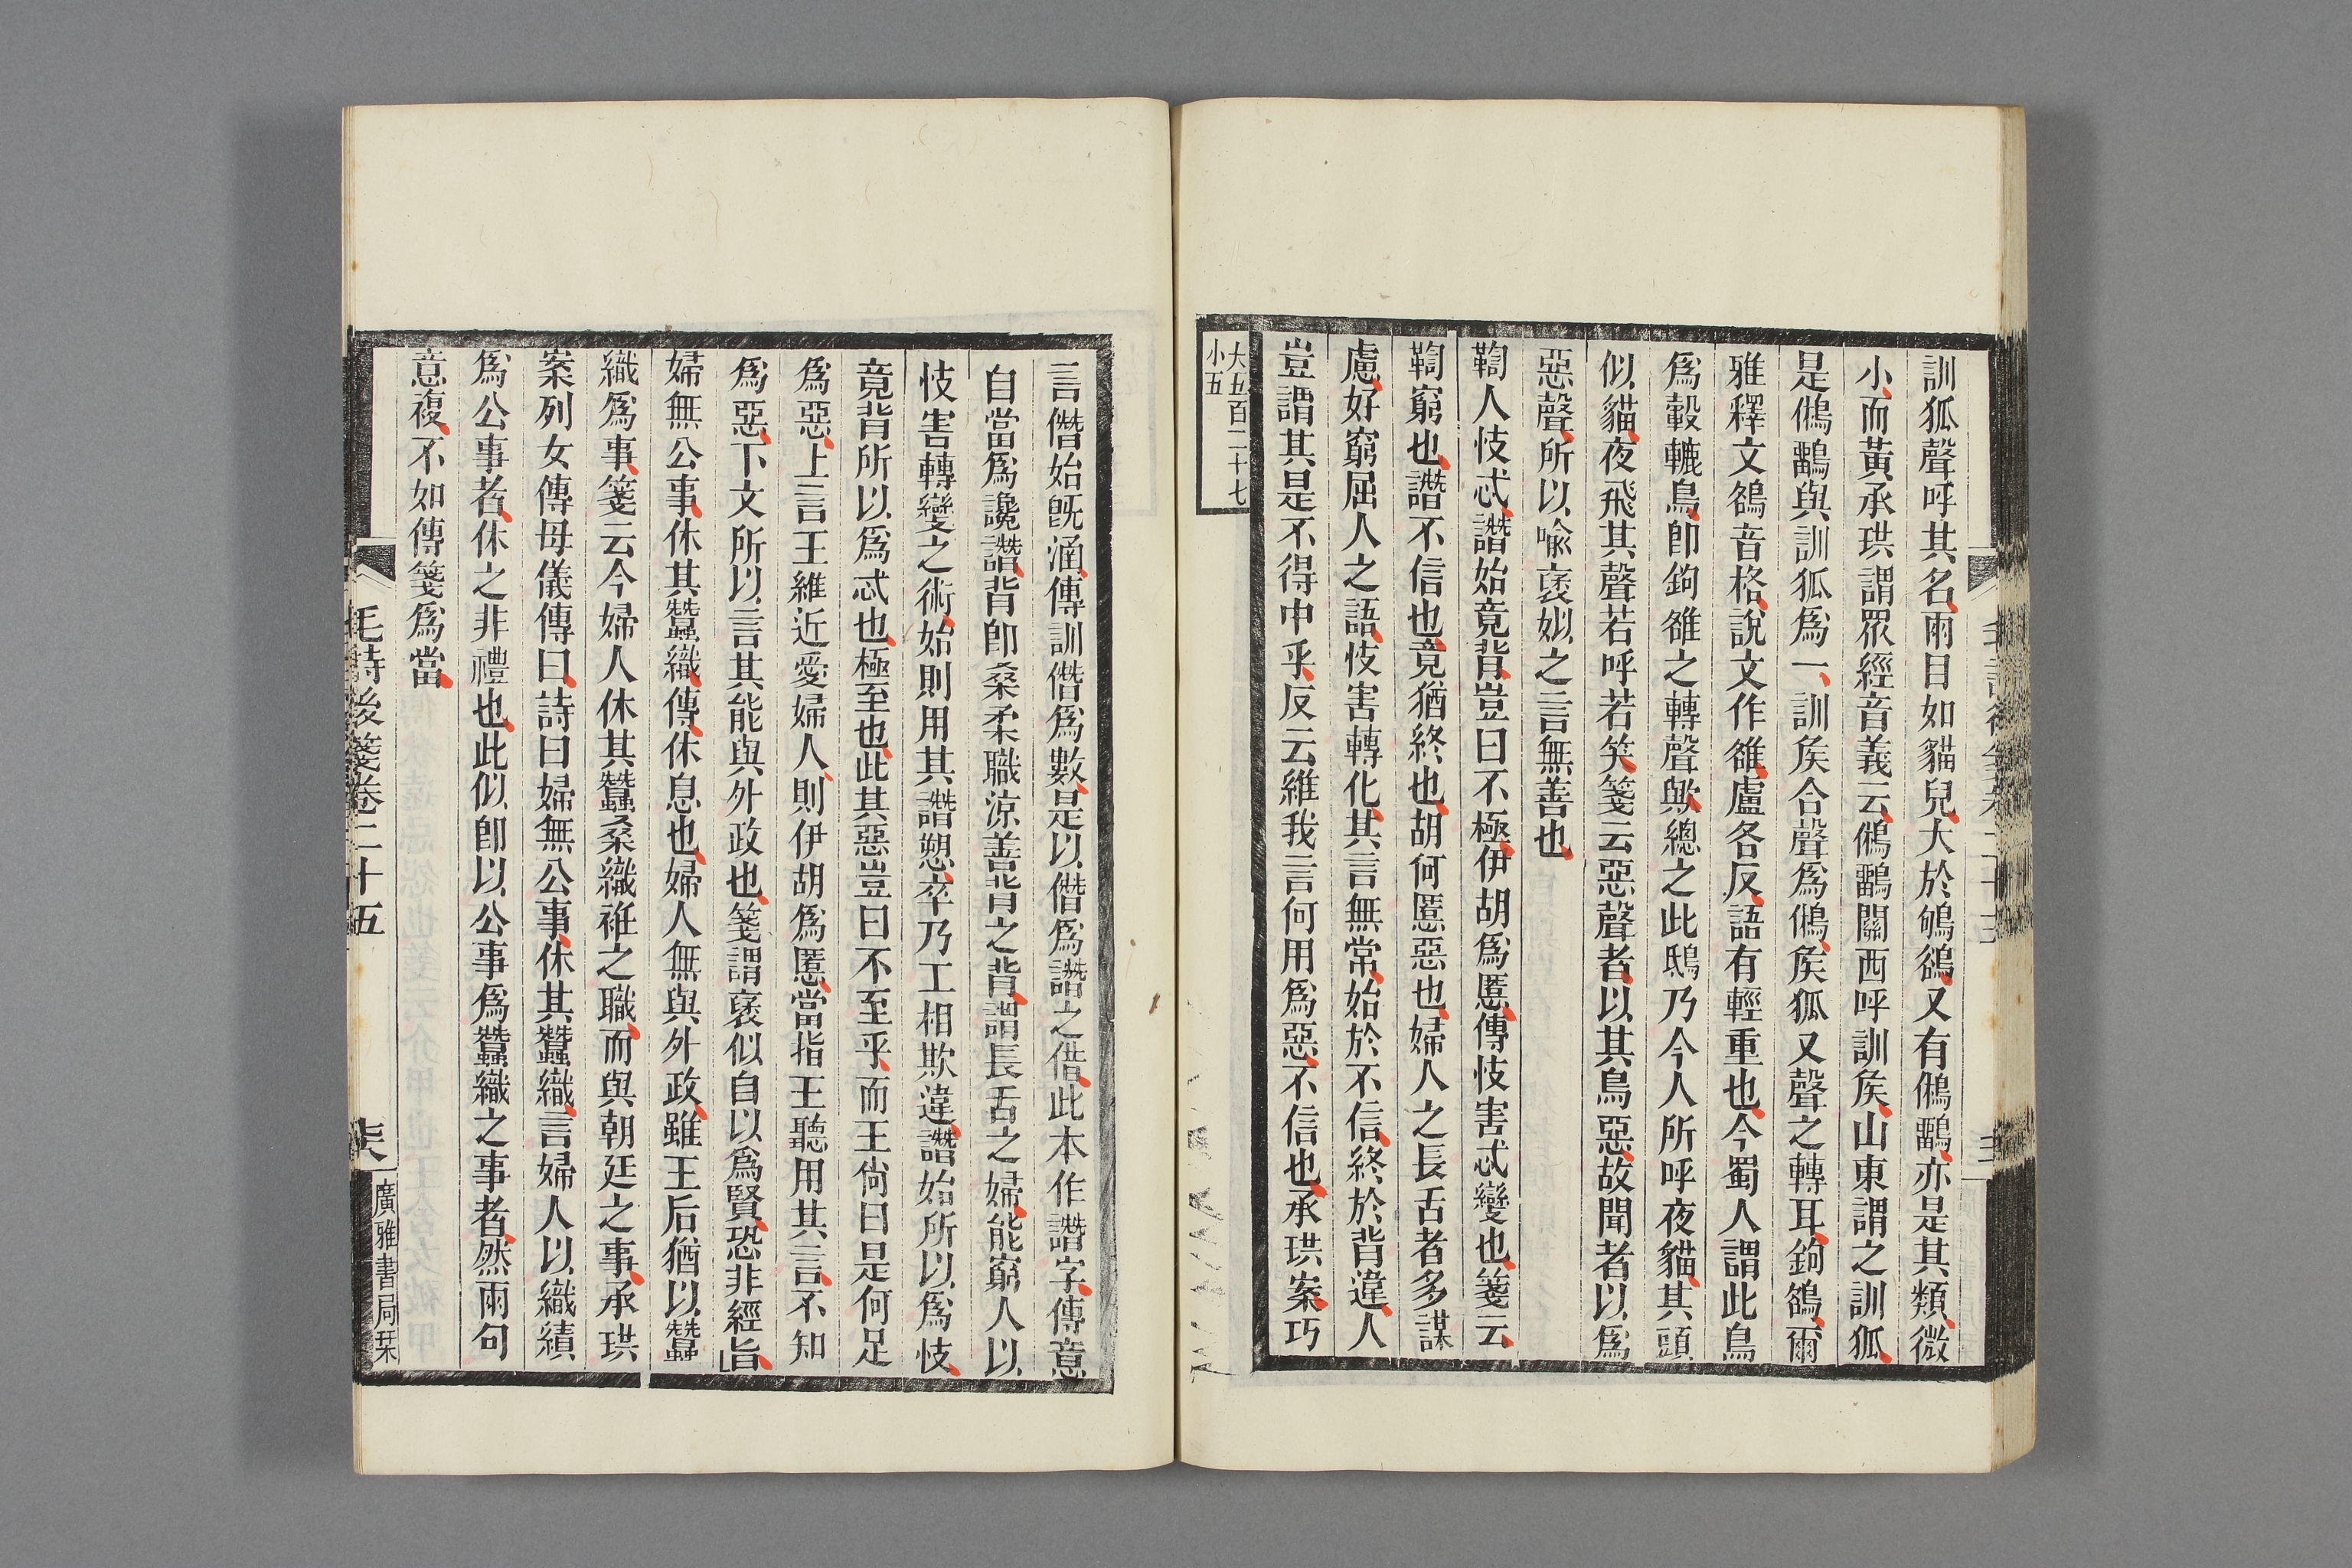 訓狐聲呼其名兩目如貓兒大於鴝鵒又有鵂鶹亦是其類微
小而黃承珙謂眾經音義云鵂鶹關西呼訓矦山東謂之訓狐
是鵂鶹與訓狐爲一訓矦合聲爲鵂矦狐又聲之轉耳鉤鵒爾
雅釋文鵒音格說文作雒盧各反語有輕重也今蜀人謂此鳥
爲轂轆鳥卽鉤雒之轉聲歟總之此鴟乃今人所呼夜貓其頭
似貓夜飛其聲若呼若笑箋云惡聲者以其鳥惡故聞者以爲
惡聲所以喩褒姒之言無善也
鞫人忮忒譖始竟背豈曰不極伊胡爲慝傳忮害忒變也箋云
鞫窮也譖不信也竟猶終也胡何慝惡也婦人之長舌者多謀
慮好窮屈人之語忮害轉化其言無常始於不信終於背違人
豈謂其是不得中乎反云維我言何用爲惡不信也承珙案巧
大五百二十七
小五
言僭始旣涵傳訓僭爲數是以僭爲譖之借此本作譖字傳意
自當爲讒譖背卽桑柔職涼善背之背謂長舌之婦能窮人以
忮害轉變之術始則用其譖愬卒乃工相欺違譖始所以爲忮
竟背所以爲忒也極至也此其惡豈曰不至乎而王尙曰是何足
爲惡上言王維近愛婦人則伊胡爲慝當指王聽用其言不知
爲惡下文所以言其能與外政也箋謂褒似自以爲賢恐非經旨
婦無公事休其蠶織傳休息也婦人無與外政雖王后猶以蠶
織爲事箋云今婦人休其蠶桑織袵之職而與朝廷之事承珙
案列女傳母儀傳曰詩曰婦無公事休其蠶織言婦人以織績
爲公事者休之非禮也此似卽以公事爲蠶織之事者然兩句
意複不如傳箋爲當
毛詩後箋卷二十五
廣雅書局栞